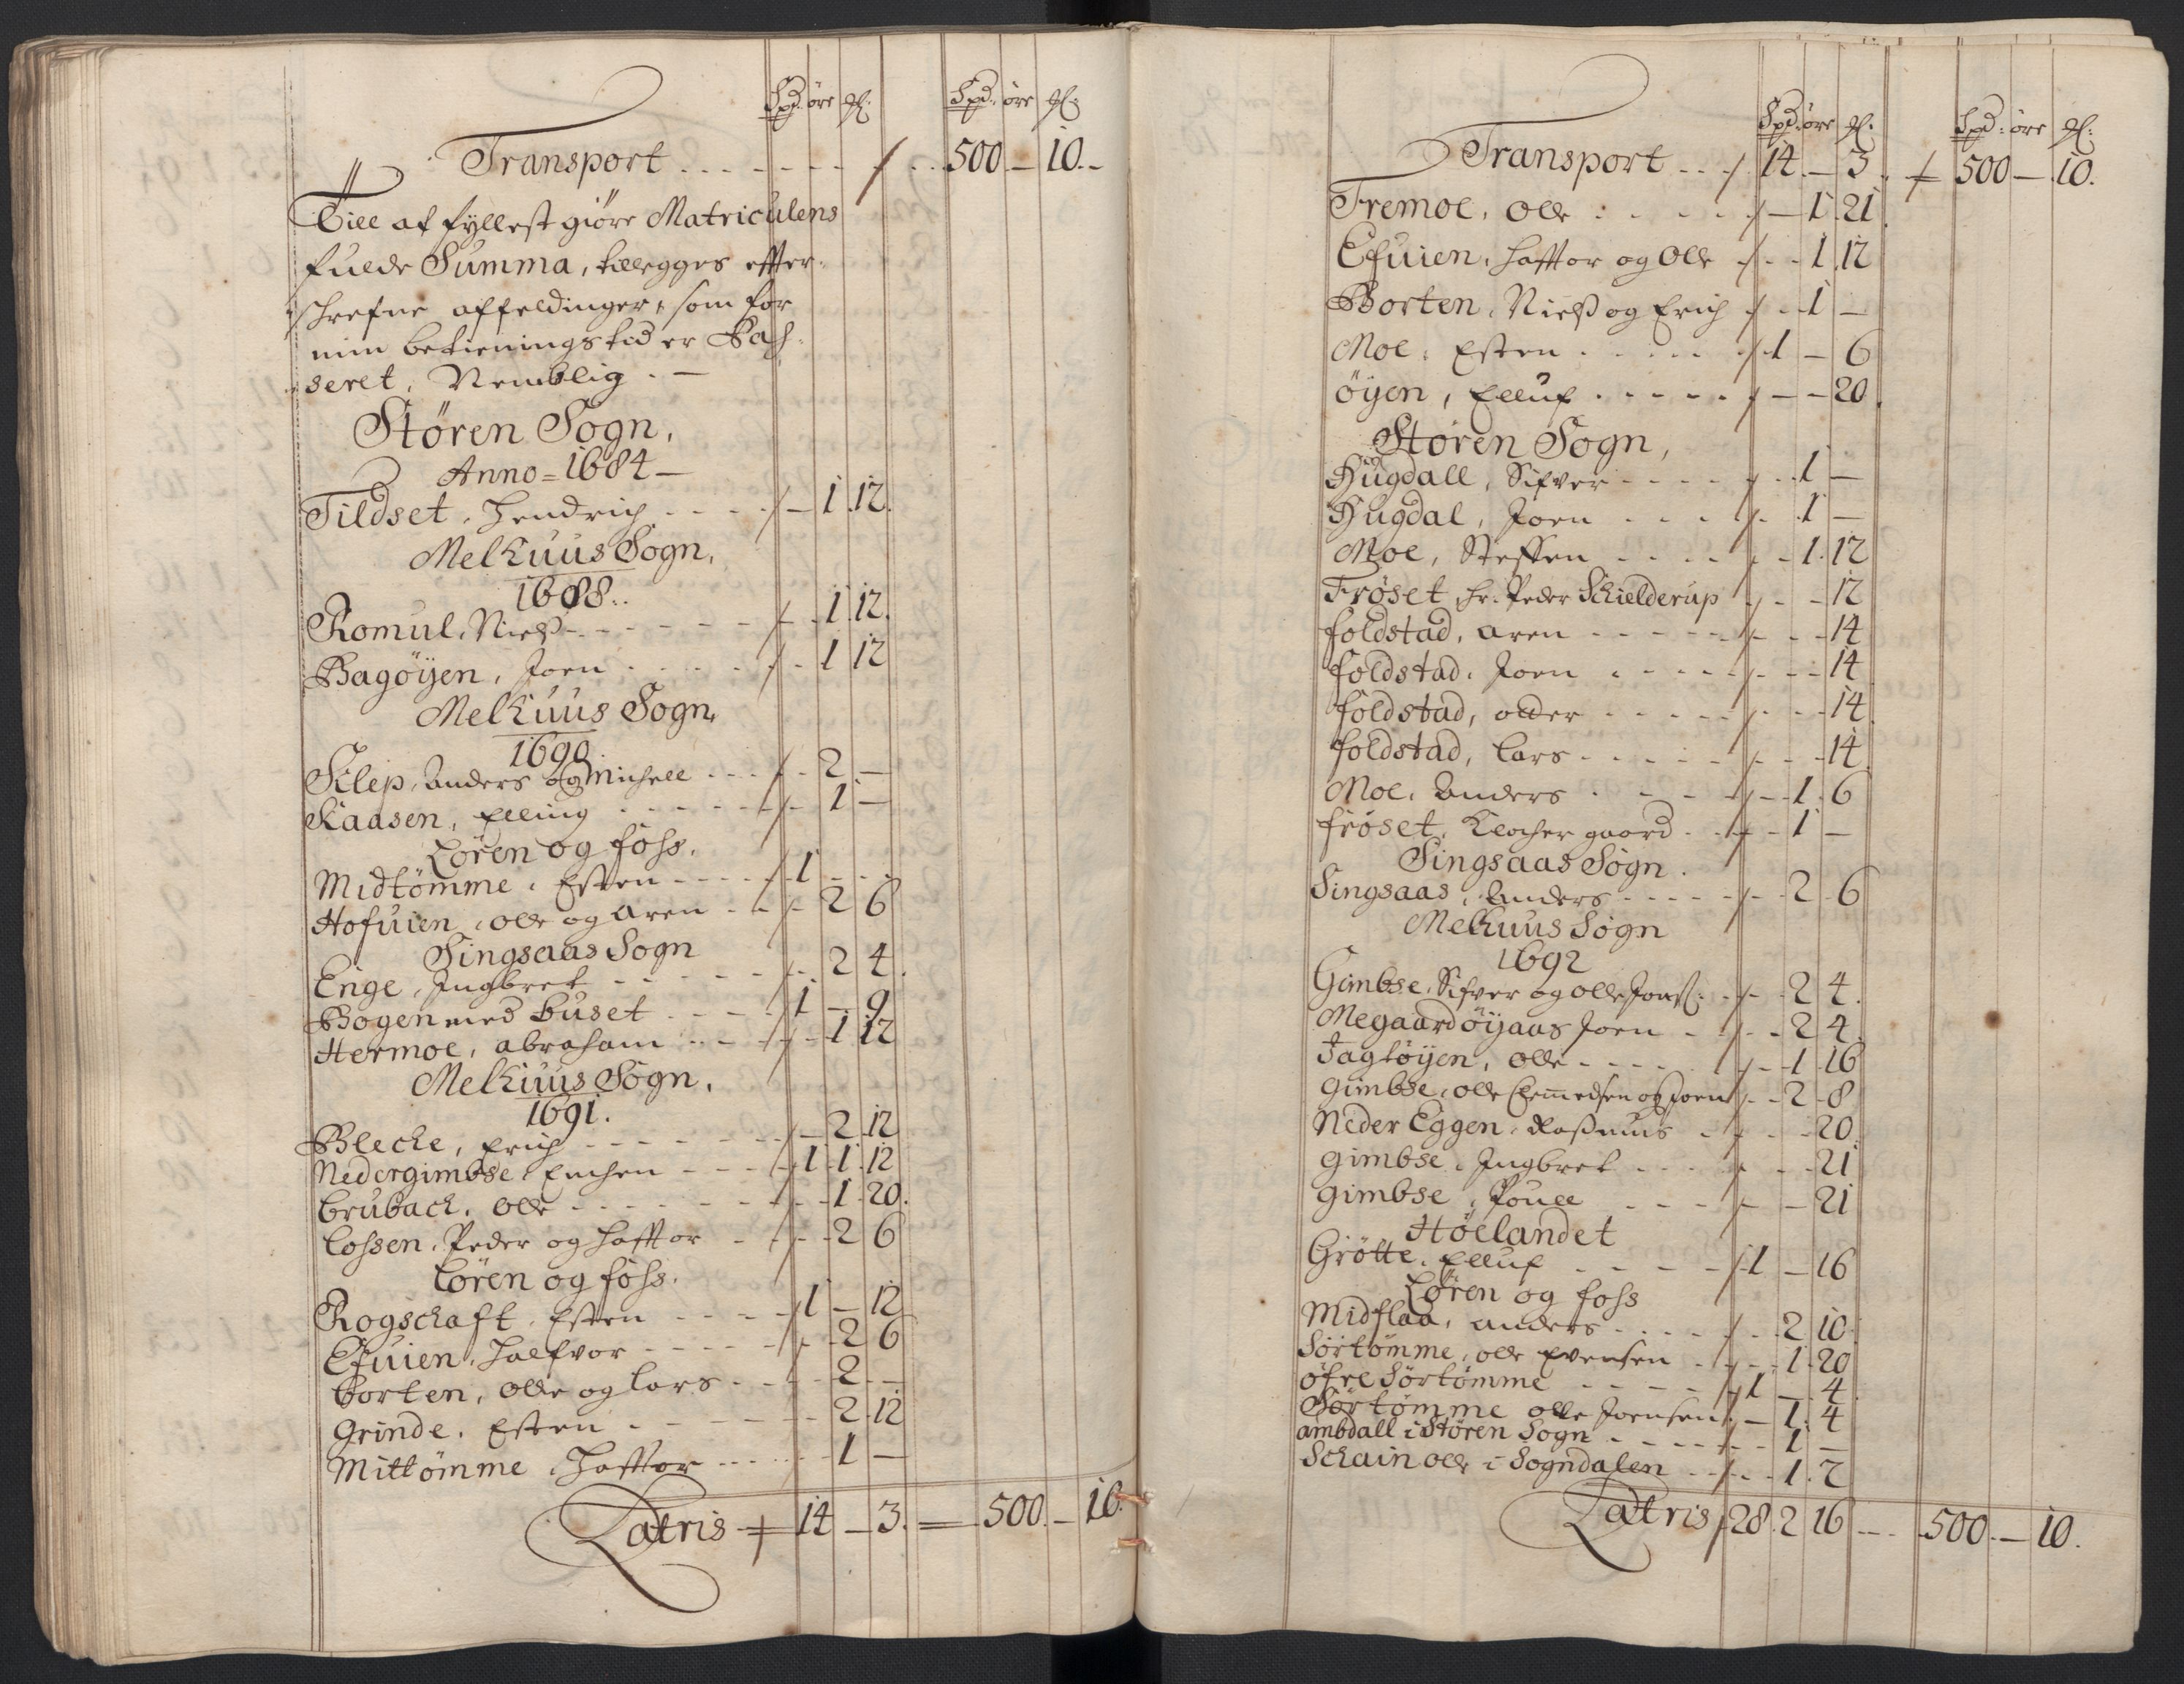 Spd: öre gl:   Spd: öre gl:
Transport . . . . . . . 500 — 10. —
Till at fyllest giöre Matriculens
fulde Summa, tillegges effter-
schrefne affeldinger, som for
min betienings tid er Pas-
seret, Nemblig. —
Stören Sogn.
Anno = 1684 —
Tildset, Hendrich . . . . — 1. 12.
Melhuus Sogn.
1688..
Romul, Niels . . . . — 1. 12.
Bagöyen, Joen . . . . — 1 12
Melhuus Sogn.
1690.
Klep, Anders og Michell . . . — 2 —
Kaasen, Elling . . . . — 1 —
Lören og foss.
Midtömme, Esten . . . . 1 — —
Hofuien, Olle og Aren . . — 2 6
Singsaas Sogn
Enge, Ingbret . . . . — 2 4.
Bogen med buset . . . . 1 — 9
Hermoe, abraham . . . — 1 12
Melhuus Sogn.
1691.
Blecke, Erich . . . . — 2 12
Nedergimbse, Enchen . . . . 1 1 12
brubach, Olle . . . . — 1 20.
Lossen, Peder og Hafftor . . — 2 6
Lören og foss.
Rogschaft, Esten . . . . 1 — 12
Efuien, Halfvor . . . . — 2 6
borten, Olle og Lars . . . — 2 —
Grinde, Esten . . . . — 2 12
Mittömme, Hafftor . . . . — 1 —
Latris 14 — 3. 500. — 10.
Spd: öre gl:   Spd: öre gl:
Transport . . . 14 — 3. 500 — 10.
Tremoe, Olle . . . . — 1. 21.
Efuien, Hafftor og Olle . . — 1. 12
Borten, Niels og Erich . . — 1 —
Moe, Esten . . . . . 1 — 6
öyen, Elluf . . . . . — — 20.
Stören Sogn,
Hugdall, Sifver . . . . — 1 —
Hugdal, Joen . . . . — 1 —
Moe, Steffen . . . . — 1. 12
Fröset, Hr. Peder Schielderup — — 12
foldstad, Aren . . . . . — — 14
foldstad, Joen . . . . . — — 14
foldstad, otter . . . . . — — 14
foldstad, Lars . . . . . — — 14.
Moe, Anders . . . . — 1. 6
fröset, Klocher gaard . . — 1 —
Singsaas Sogn.
Singsaas, Anders . . . . — 2. 6
Melhuus Sogn
1692
Gimbse, Sifver og Olle Jonss. . — 2 4.
Megaard öyaas Joen . . — 2 4.
Jagtöyen, Olle . . . . — 1 16
gimbse, Olle Clemmedsen og Joen — 2 8
Neder Eggen, Rasmus . . — — 20.
gimbse, Ingbret . . . — — 21
gimbse, Pouell . . . — — 21
Höelandet
Grötte, Elluf . . . . 1 — 16
Lören og foss
Midflaa, anders . . . . — 2 10.
Sörtömme, olle Evensen . . — 1. 20
öfre Sörtömme . . . . 1 — 4.
Sörtömme olle Joensen . — 1. 4
ambdall i Stören Sogn . . . . — 1 —
Schain olle i Sogndalen . . — 1. 7
Latris 28. 2 16 — 500. — 10.